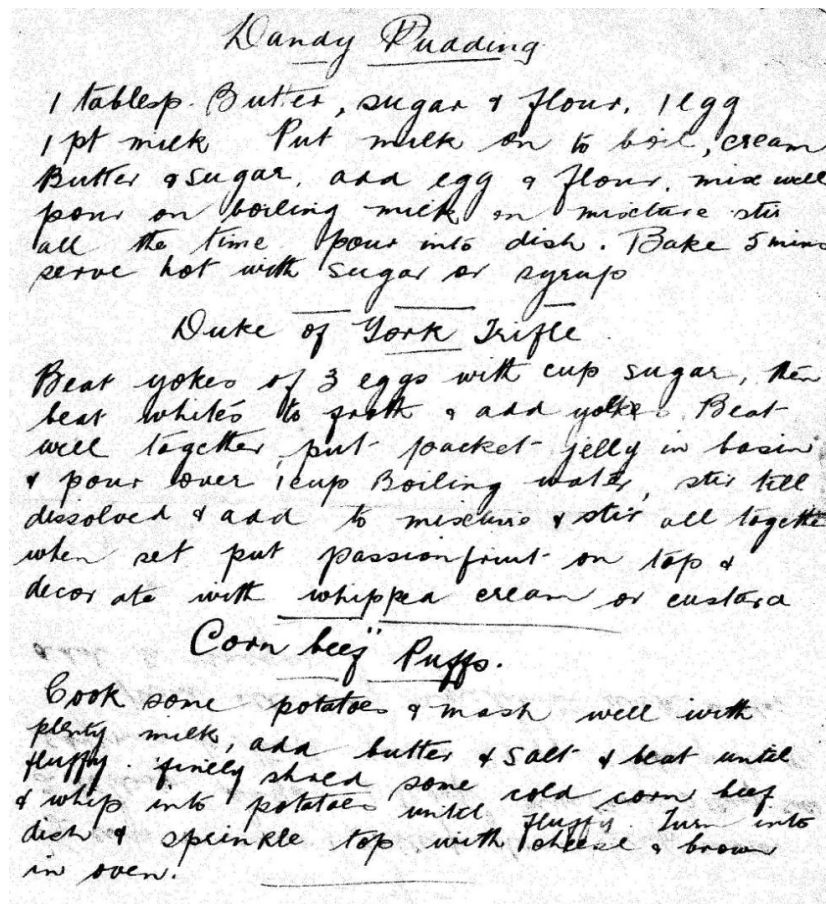 Dandy Pudding
1 tablesp. Butter, sugar & flour, 1 egg
1 pt milk Put milk on to boil, cream
Butter & sugar, add egg & flour, mix well
pour on boiling milk on mixture stir
all the time pour into dish. Bake 5 mins
serve hot with sugar or syrup
Duke of York Trifle
Beat yokes of 3 eggs with cup sugar, then
beat whites to froth & add yolkes. Beat
well together, put packet jelly in basin
& pour over 1 cup Boiling water, stir till
dissolved & add to mixture & stir all togethe
when set put passionfruit on top &
decorate with whipped cream or custard
Corn beef Puffs.
Cook some potatoes & mash well with
plenty milk, add butter & salt & beat until
fluffy. finely shred some cold corn beef
& whip into potatoes until fluffy. Turn into
dish & sprinkle top with cheese & brown
in oven.